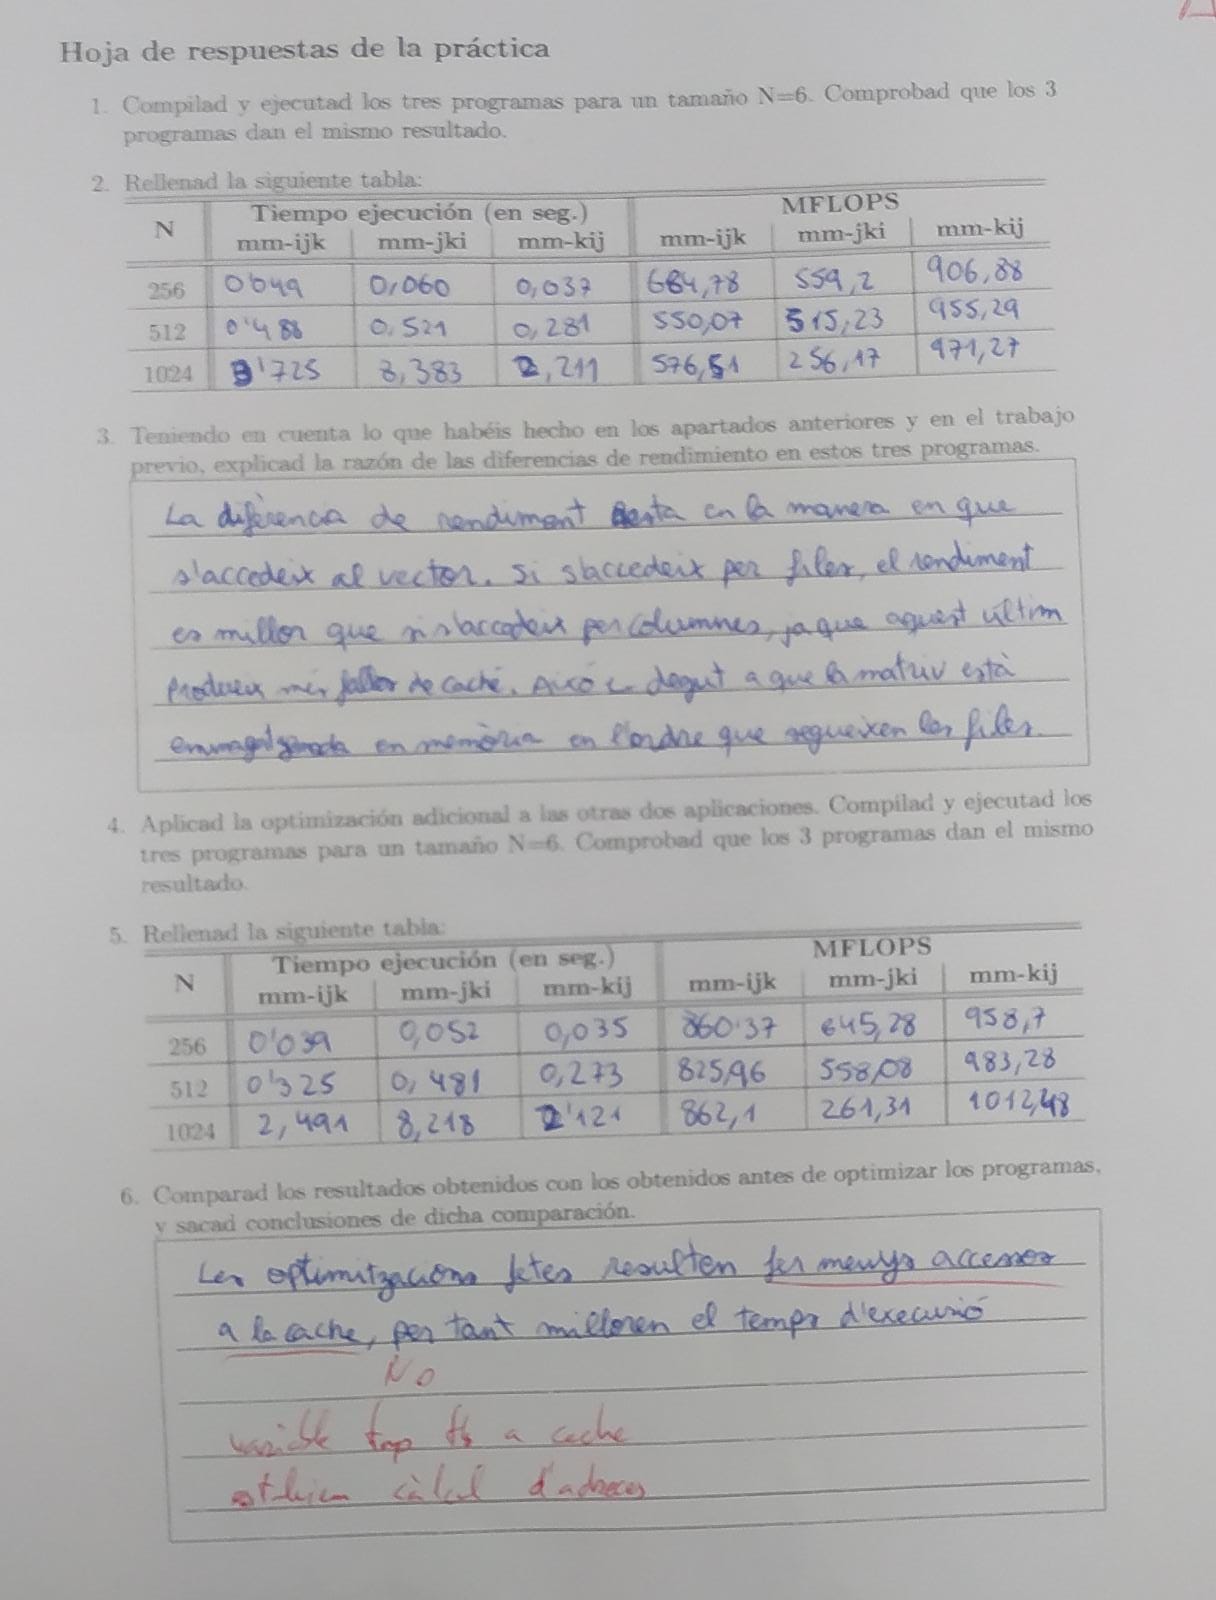 Hoja de respuestas de la práctica
1. Compilad y ejecutad los tres programas para un tamaño N=6. Comprobad que los 3
programas dan el mismo resultado.
2. Rellenad la siguiente tabla:
N Tiempo ejecución (en seg.) MFLOPS
mm-ijk mm-jki mm-kij mm-ijk mm-jki mm-kij
256 0'049 0,060 0,037 684,78 559,2 906,88
512 0'488 0,521 0,281 550,07 515,23 955,29
1024 3'725 8,383 2,211 576,51 256,17 971,27
3. Teniendo en cuenta lo que habéis hecho en los apartados anteriores y en el trabajo
previo, explicad la razón de las diferencias de rendimiento en estos tres programas.
La diferència de rendiment esta en la manera en que
s'accedeix al vector. Si s'accedeix per files, el rendiment
es millor que si s'accedeix per columnes, ja que aquest últim
produeix més fallos de caché. Això és degut a que la matriu està
emmagatzemada en memòria en l'ordre que segueixen les files.
4. Aplicad la optimización adicional a las otras dos aplicaciones. Compilad y ejecutad los
tres programas para un tamaño N=6. Comprobad que los 3 programas dan el mismo
resultado.
5. Rellenad la siguiente tabla:
N Tiempo ejecución (en seg.) MFLOPS
mm-ijk mm-jki mm-kij mm-ijk mm-jki mm-kij
256 0'039 0,052 0,035 860'37 645,28 958,7
512 0'325 0,481 0,273 825,96 558,08 983,28
1024 2,491 8,218 2'121 862,1 261,31 1012,48
6. Comparad los resultados obtenidos con los obtenidos antes de optimizar los programas,
y sacad conclusiones de dicha comparación.
Les optimitzacions fetes resulten fer menys accessos
a la cache, per tant milloren el temps d'execució
No
variable tmp a cache
estalviem càlcul d'adreces